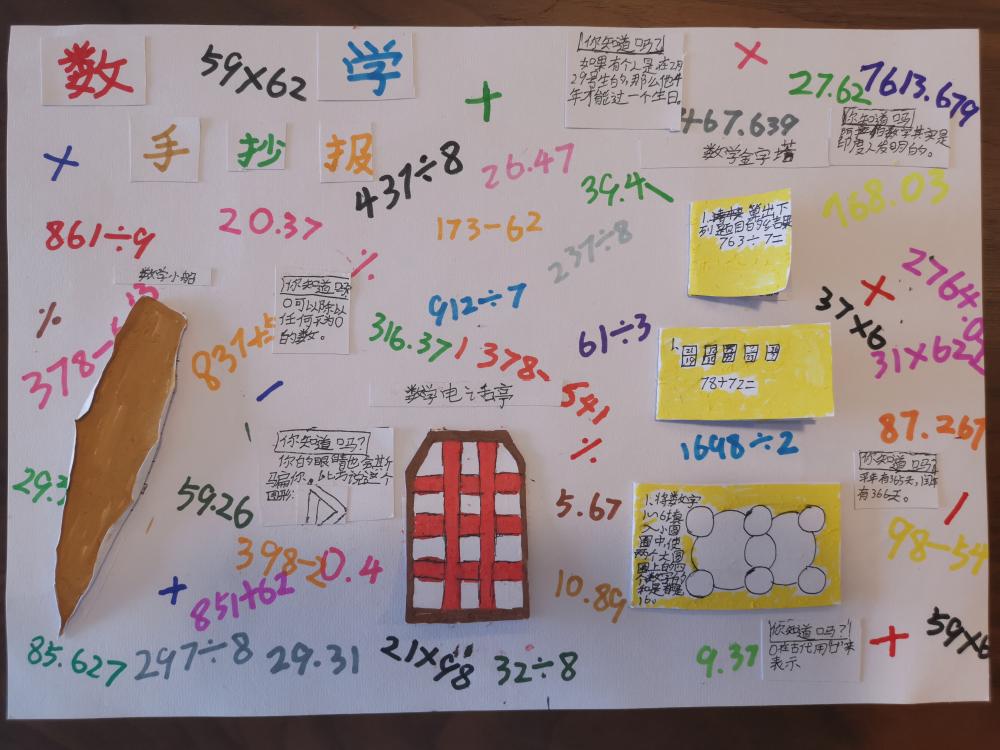 数
59×62
学
+
你知道吗?
如果有个人是在2月
29号生的,那么他4
年才能过一个生日。
×
27.62
7613.679
467.639
你知道吗
数字其实是
印度人发明的。
×
手
抄
报
437÷8
26.47
39.4
数学金字塔
768.03
861÷9
20.37
173-62
237÷8
1.
算出下
列题目的结果
763÷7=
数学小船
%
你知道吗
0可以除以
任何不为0
的数。
912÷7
316.37
61÷3
37×6
×
2764.0
31×622
%
378-
837÷5
1378-
541
1.
78+72=
数学电话亭
1698÷2
87.267
%
29.3
59.26
你知道吗?
你的眼睛也会欺
骗你。比方说这个
图形:
5.67
1.将数字
1~6填
入小圆
圈中,使
两个大圆
圈上的四
个数字的
和是都是
16。
你知道吗?
平年有365天,闰年
有366天。
98-54
398-2
0.4
+
851+62
10.89
85.627
297÷8
29.31
21×98
32÷8
9.37
你知道吗?
0在古代用“口”来
表示
+
59×6